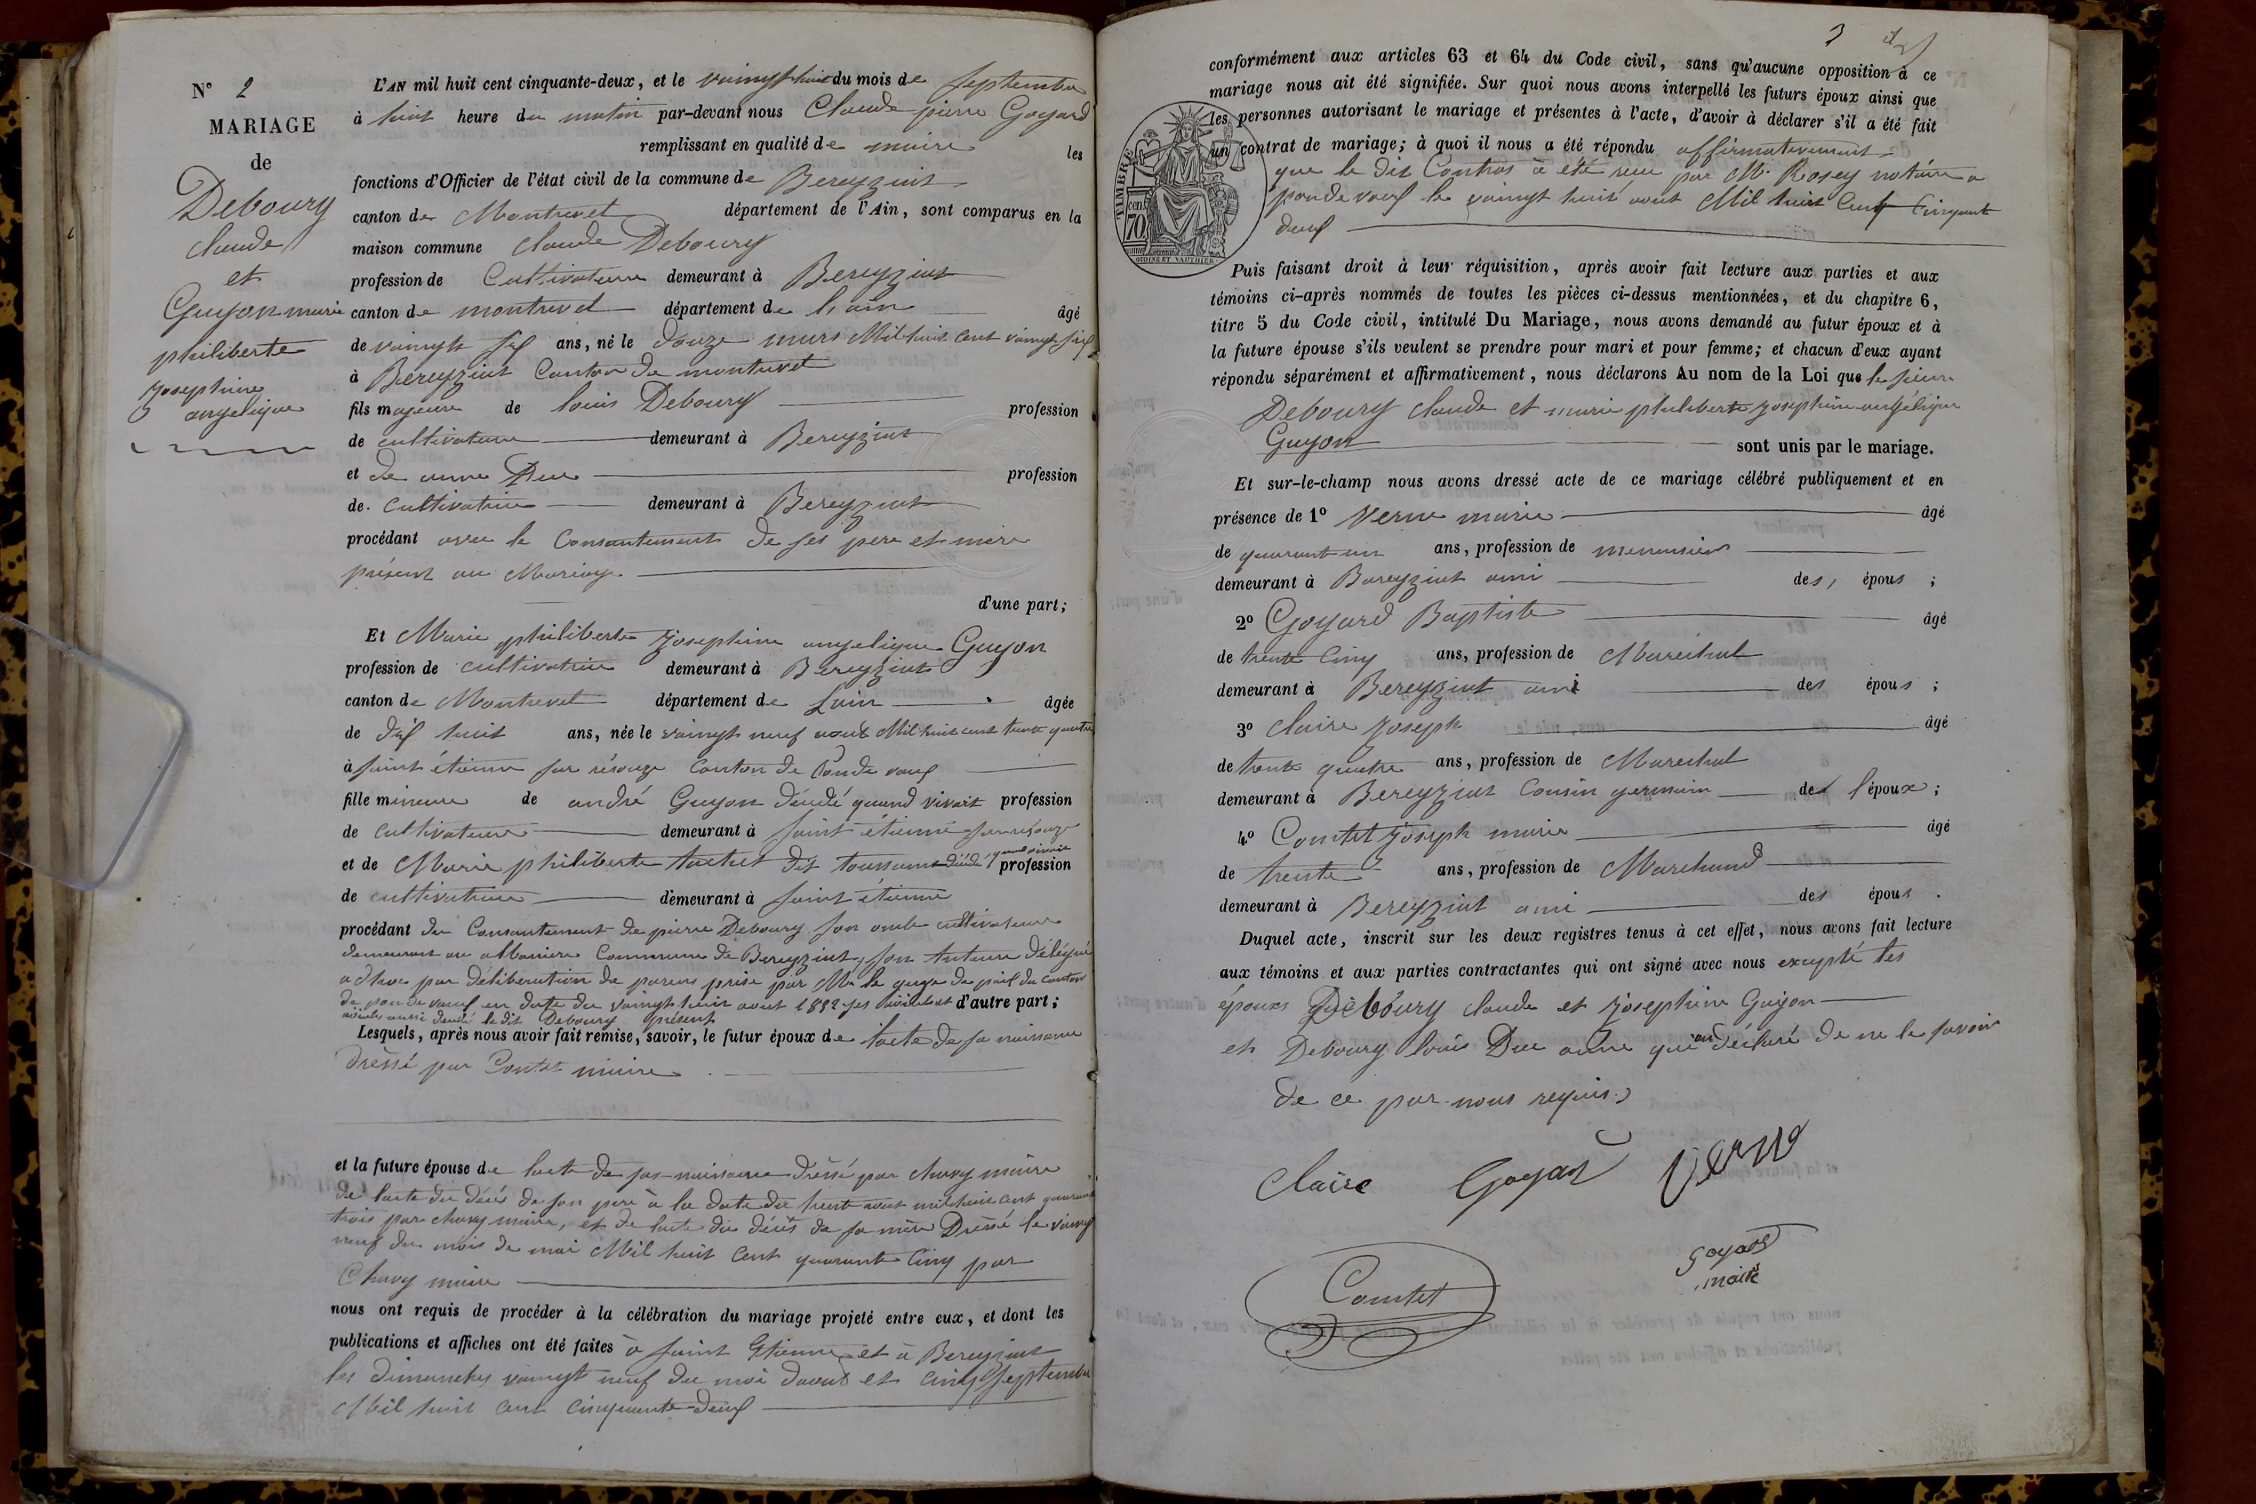 N° 2
MARIAGE
de
Deboury
claude
et
Guyon marie
philiberte
josephine
angelique
L'AN mil huit cent cinquante-deux, et le vaingt huit du mois de septembre
à huit heure du matin par-devant nous Claude pierre Goyard
remplissant en qualité de maire les
fonctions d'Officier de l'état civil de la commune de Bereyziat
canton de Montrevel département de l'Ain, sont comparus en la
maison commune claude Deboury
profession de Cultivateur demeurant à Bereyziat
canton de montrevel département de lain âgé
de vaingt six ans, né le douze mars Mil huit cent vaingt six
à Bereyziat Canton de montrevel
fils majeure de louis Deboury profession
de cultivateur demeurant à Bereyziat
et de anne Duc profession
de cultivatrice demeurant à Bereyziat
procédant avec le Consantement de ses pere et mere
présent au Mariage
d'une part;
Et Marie philiberte josephine angelique Guyon
profession de cultivatrice demeurant à Bereyziat
canton de Montrevel département de Lain âgée
de dix huit ans, née le vaingt neuf aout Mil huit cent trente quatre
à saint étienne sur résouze Canton de Ponde vaux
fille mineure de andré Guyon décédé quand vivait profession
de cultivateur demeurant à saint étienne sur résouze
et de Marie philiberte tachet dit toussaint décédé quand vivait profession
de cultivatrice demeurant à saint étienne
procédant du Consantement de pierre Deboury son oncle cultivateur
demeurant au Commune de Bereyziat, son tuteur délégué
a d'hoc par délibération de parens prise par Mr le juge de paix du canton
de pon de vaux en date du vaingt huit aout 1852 ses d'autre part;
aussi décédé le dit Deboury présent
Lesquels, après nous avoir fait remise, savoir, le futur époux de lacte de sa naissance
dressé par Contet maire
et la future épouse de lacte de sas naissance dressé par chavy maire
de lacte du décès de son père à la date du trente aout mil huit cent quarante
trois par chavy maire, et de lacte du décès de sa mère Dressé le vaingt
neuf du mois de mai Mil huit Cent quarante Cinq par
Chavy maire
nous ont requis de procéder à la célébration du mariage projeté entre eux, et dont les
publications et affiches ont été faites à saint Etienne et à Bereyziat
les dimanches vaingt neuf du moi daout et cinq Septembre
Mil huit cent cinquante-deux
3
conformément aux articles 63 et 64 du Code civil, sans qu'aucune opposition à ce
mariage nous ait été signifiée. Sur quoi nous avons interpellé les futurs époux ainsi que
les personnes autorisant le mariage et présentes à l'acte, d'avoir à déclarer s'il a été fait
un contrat de mariage; à quoi il nous a été répondu affirmativement
que le dit Contras à été recu par Mr Rosey notaire a
ponde vaux le vaingt huit aout Mil huit Cent Cinquante
deux
TIMBRE
70
Puis faisant droit à leur réquisition, après avoir fait lecture aux parties et aux
témoins ci-après nommés de toutes les pièces ci-dessus mentionnées, et du chapitre 6,
titre 5 du Code civil, intitulé Du Mariage, nous avons demandé au futur époux et à
la future épouse s'ils veulent se prendre pour mari et pour femme; et chacun d'eux ayant
répondu séparément et affirmativement, nous déclarons Au nom de la Loi que le sieur
Deboury claude et marie philiberte josephine angélique
Guyon sont unis par le mariage.
Et sur-le-champ nous avons dressé acte de ce mariage célébré publiquement et en
présence de 1° Verne marie âgé
de quarant un ans, profession de menuisier
demeurant à Bareyziat ami des épous ;
2° Goyard Baptiste âgé
de trente Cinq ans, profession de Marechal
demeurant à Bereyziat ami des épous ;
3° claire joseph âgé
de trente quatre ans, profession de Marechal
demeurant à Bereyziat Cousin germain de l'époux ;
4° Comtet joseph marie âgé
de trente ans, profession de Marchand
demeurant à Bereyziat ami des épous .
Duquel acte, inscrit sur les deux registres tenus à cet effet, nous avons fait lecture
aux témoins et aux parties contractantes qui ont signé avec nous excepté les
épouxs Deboury claude et josephine Guyon
et Deboury louis Duc anne qui ont déclaré de ne le savoir
de ce par nous requis
Claire Goyard Verne
Goyard
maire
Comtet